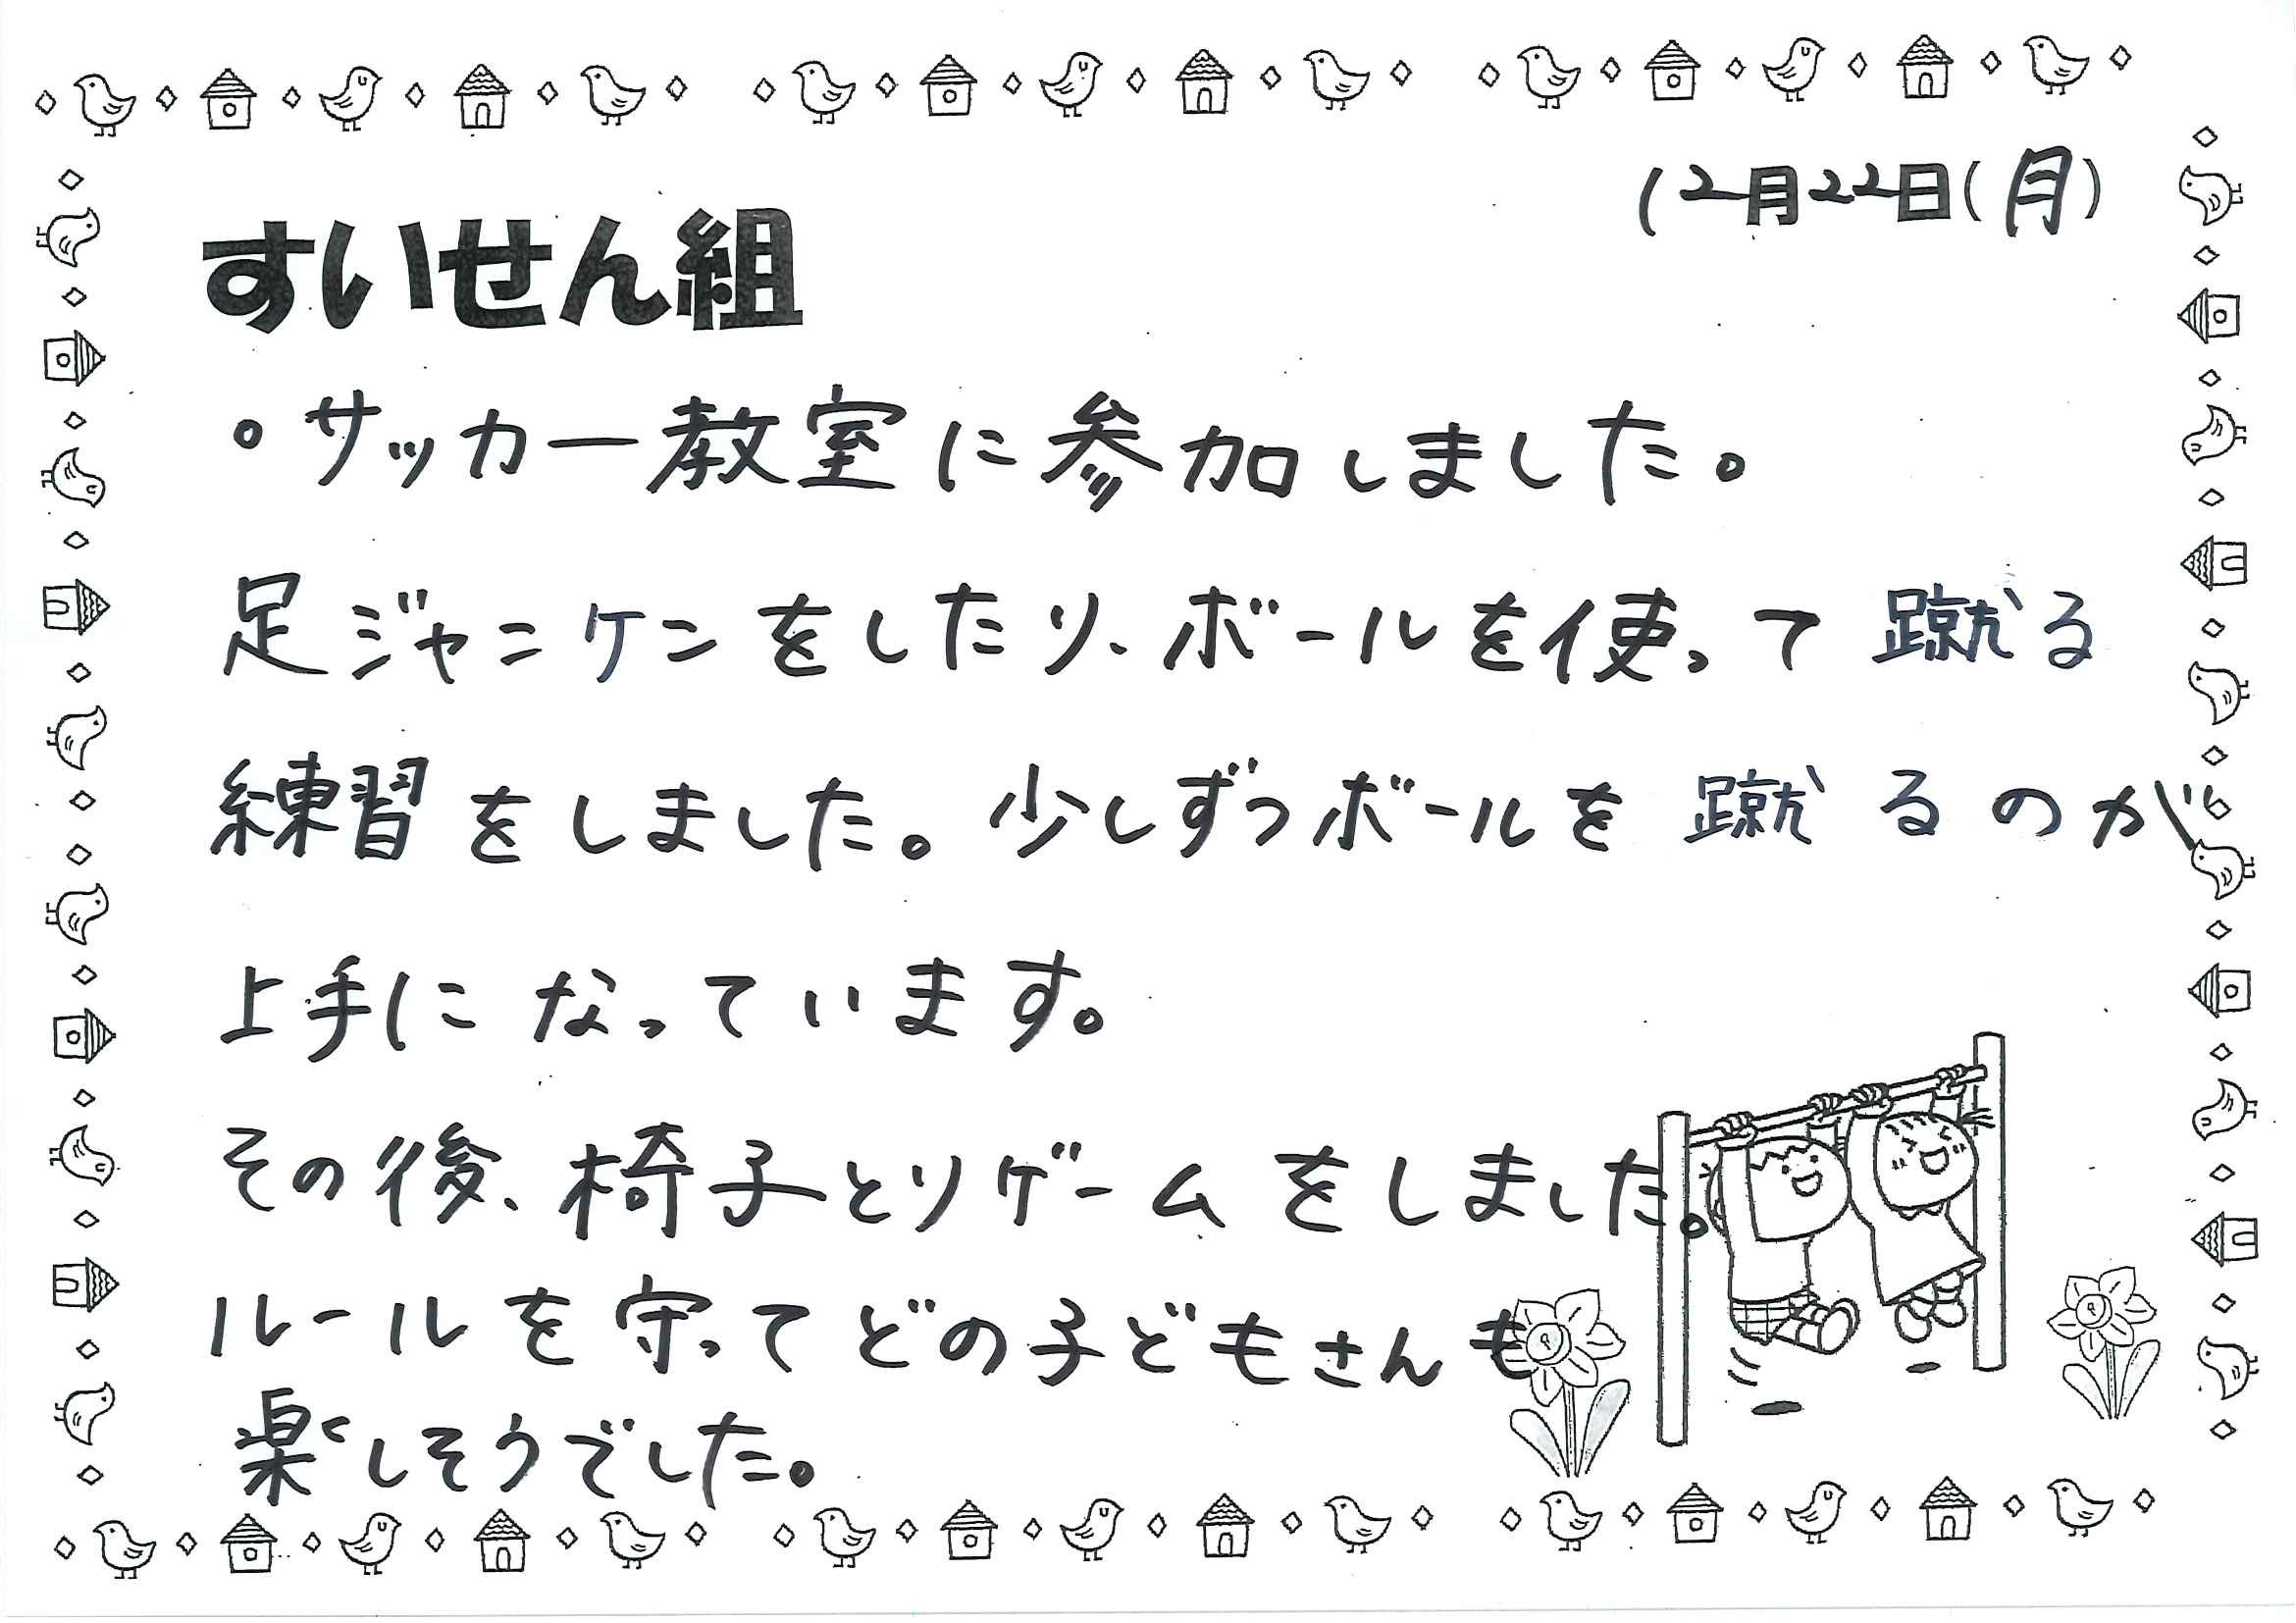 12月22日(月)
すいせん組
。サッカー教室に参加しました。
足ジャンケンをしたり、ボールを使って蹴る
練習をしました。少しずつボールを蹴るのが
上手になっています。
その後、椅子とりゲームをしました。
ルールを守ってどの子どもさんも
楽しそうでした。